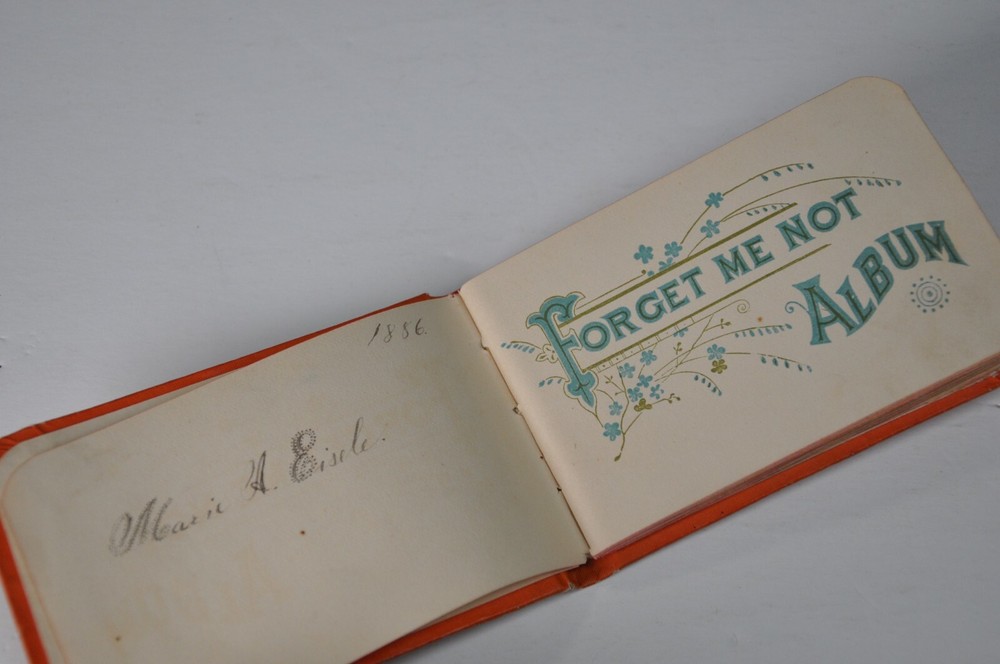 1886.
Marie A. Eisele.
FORGET ME NOT
ALBUM